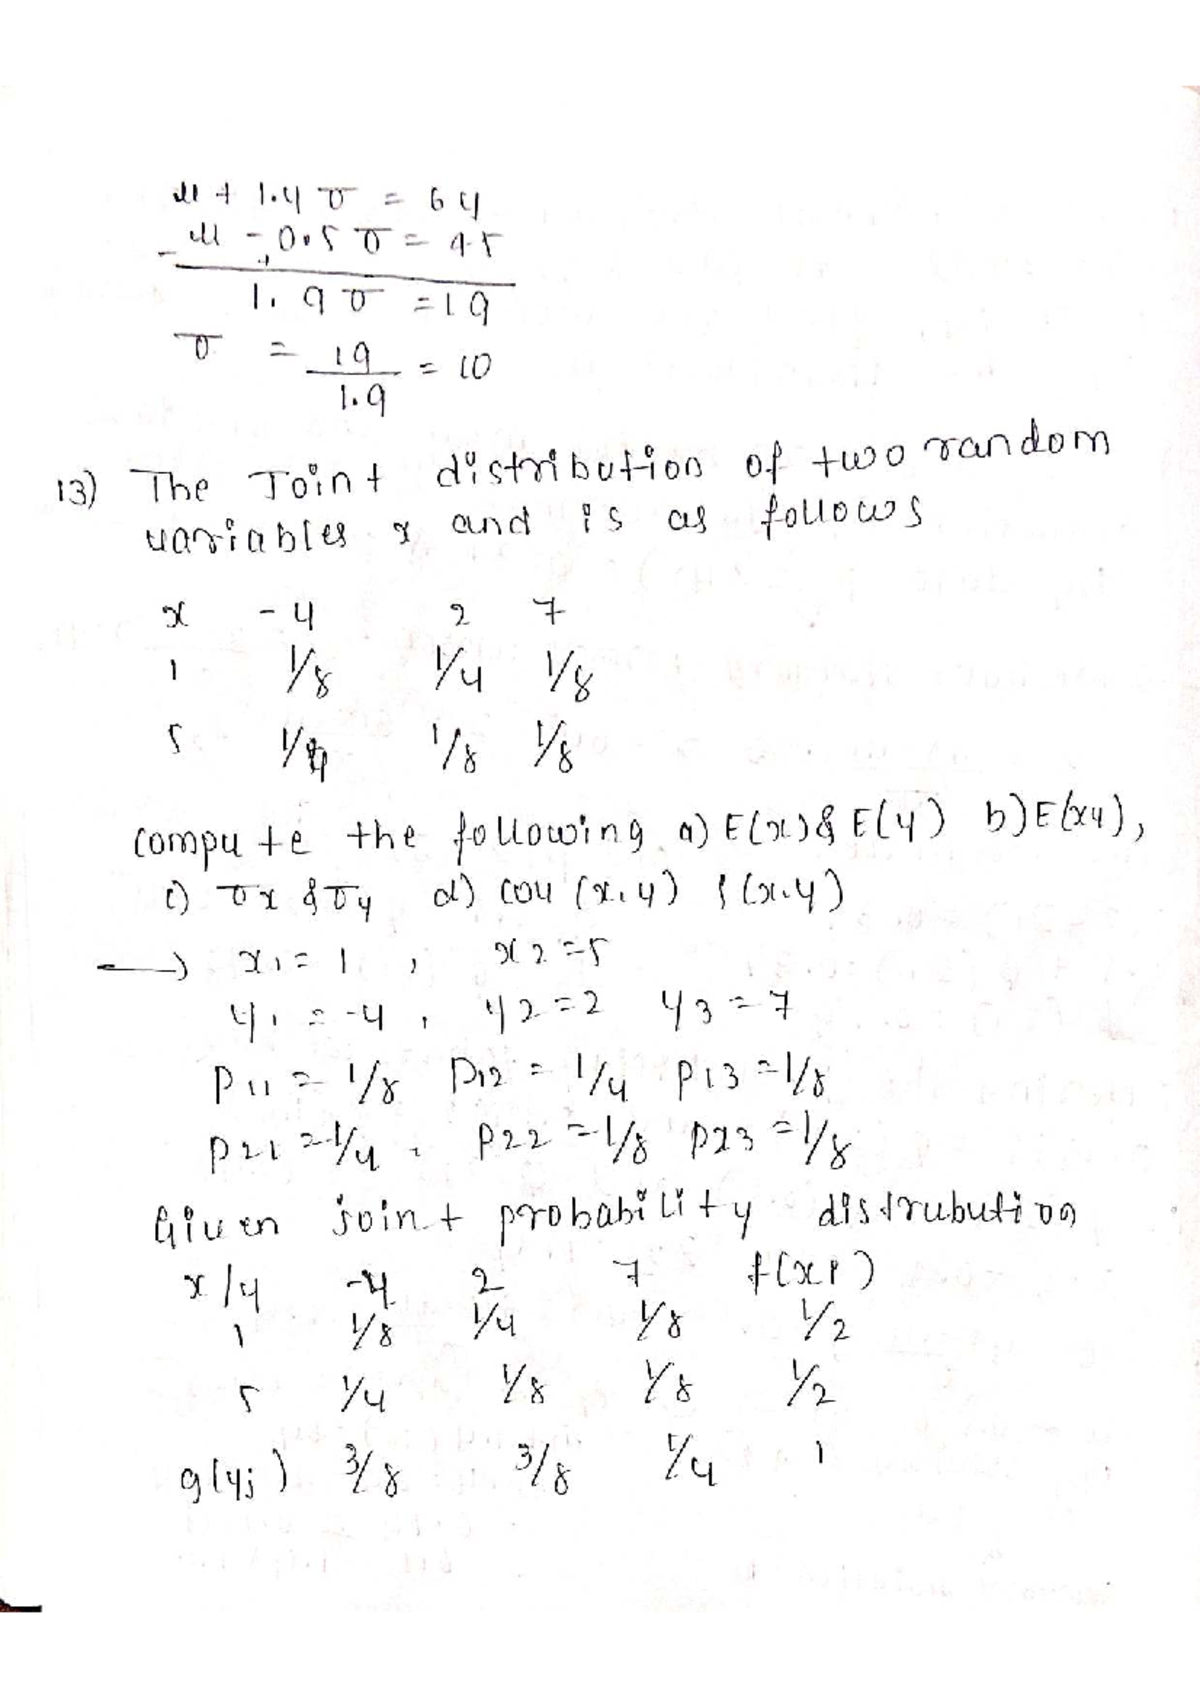 μ + 1.4 σ = 64
- μ - 0.5 σ = 45
+
1.9 σ = 19
σ = 19/1.9 = 10
13) The Joint distribution of two random
variables x and is as follows
x -4 2 7
1 1/8 1/4 1/8
5 1/4 1/8 1/8
compute the following a) E(x) & E(y) b) E(xy),
c) σx & σy d) cov (x,y) ρ(x,y)
→ x1 = 1 , x2 = 5
y1 = -4 , y2 = 2 y3 = 7
P11 = 1/8 P12 = 1/4 P13 = 1/8
P21 = 1/4 , P22 = 1/8 P23 = 1/8
Given joint probability distrubution
x/y -4 2 7 f(x)
1 1/8 1/4 1/8 1/2
5 1/4 1/8 1/8 1/2
g(yj) 3/8 3/8 1/4 1